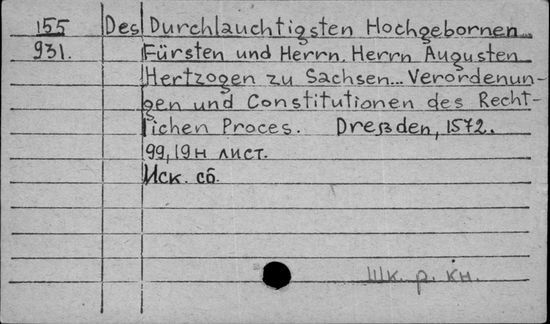 155 Des Durchlauchtigsten Hochgebornen
931. Fürsten und Herrn, Herrn Augusten
Hertzogen zu Sachsen... Verordenun-
gen und Constitutionen des Recht-
lichen Proces. Dreßden, 1572.
99, 19н лист.
Иск. сб.
Шк. р. кн.